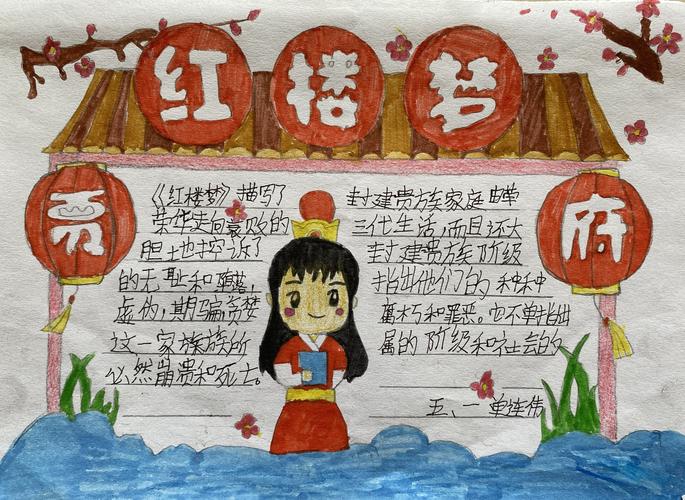 红楼梦
贾府
《红楼梦》描写了 封建贵族家庭由
荣华走向衰败的 三代生活,而且还大
胆地控诉了 封建贵族阶级
的无耻和堕落, 指出他们的种种
虚伪,期骗贪婪 腐朽和罪恶。它不单指出
这一家族族所 属的阶级和社会的
必然崩贵和死亡。
五、一 单连伟